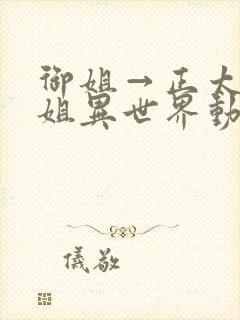 御姐→正太
姐異世界動
儀敬